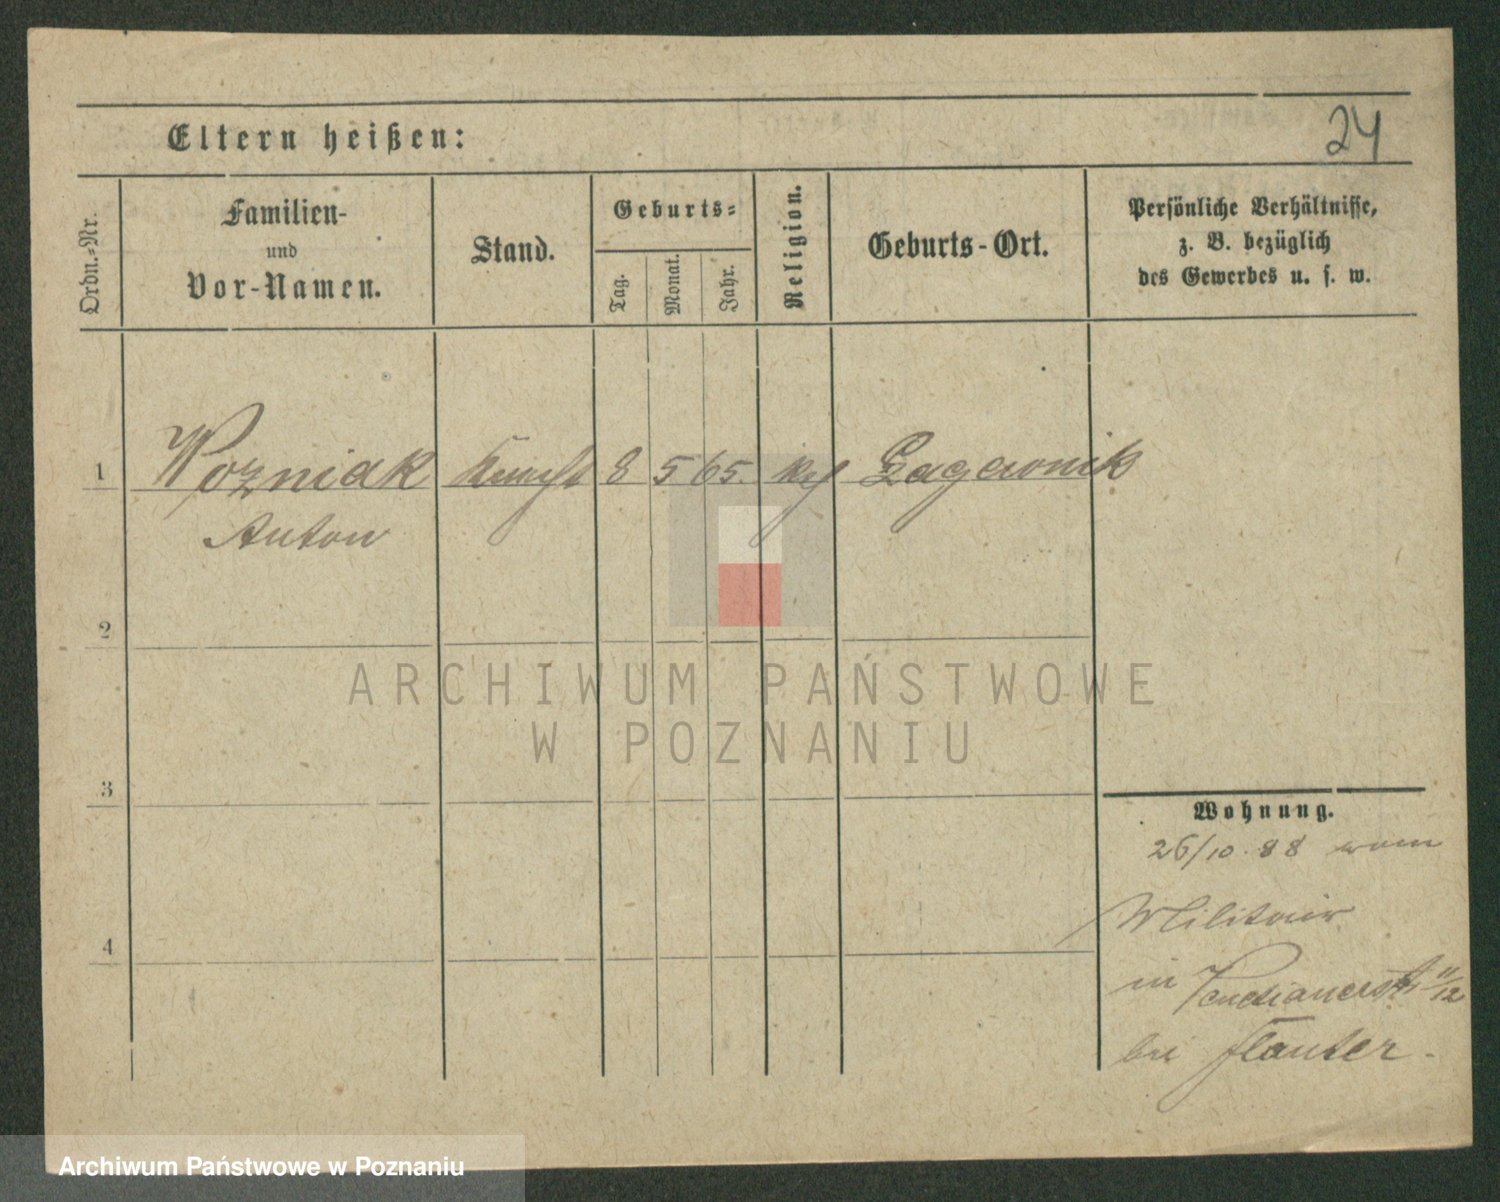 24
Eltern heißen:
Ordn.-Nr.
Familien-
und
Vor-Namen.
Stand.
Geburts-
Tag.
Monat.
Jahr.
Religion.
Geburts-Ort.
Persönliche Verhältnisse,
z. B. bezüglich
des Gewerbes u. s. w.
1 Wozniak Knecht 8 5 65. kath
Anton
2
3
4
Wohnung.
26/10. 88 vom
Militair
in 11/12
bei
ARCHIWUM PAŃSTWOWE
W POZNANIU
Archiwum Państwowe w Poznaniu